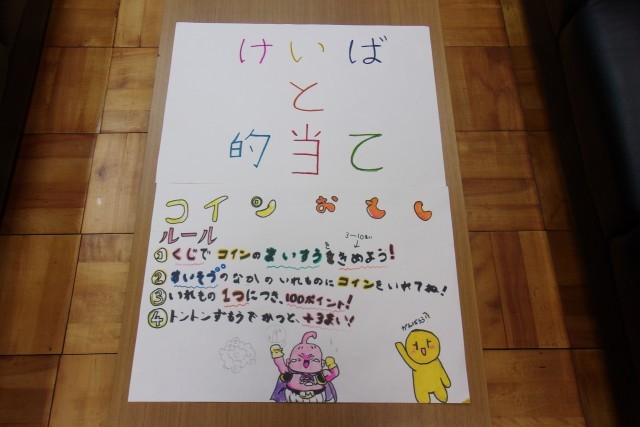 けいば
と
的当て
コインおとし
ルール
3〜10まい
①くじでコインのまいすうをきめよう!
②すいそうのなかのいれものにコインをいれてね!
③いれもの1つにつき、100ポイント!
④トントンずもうでかつと、+3まい!
がんばろう!